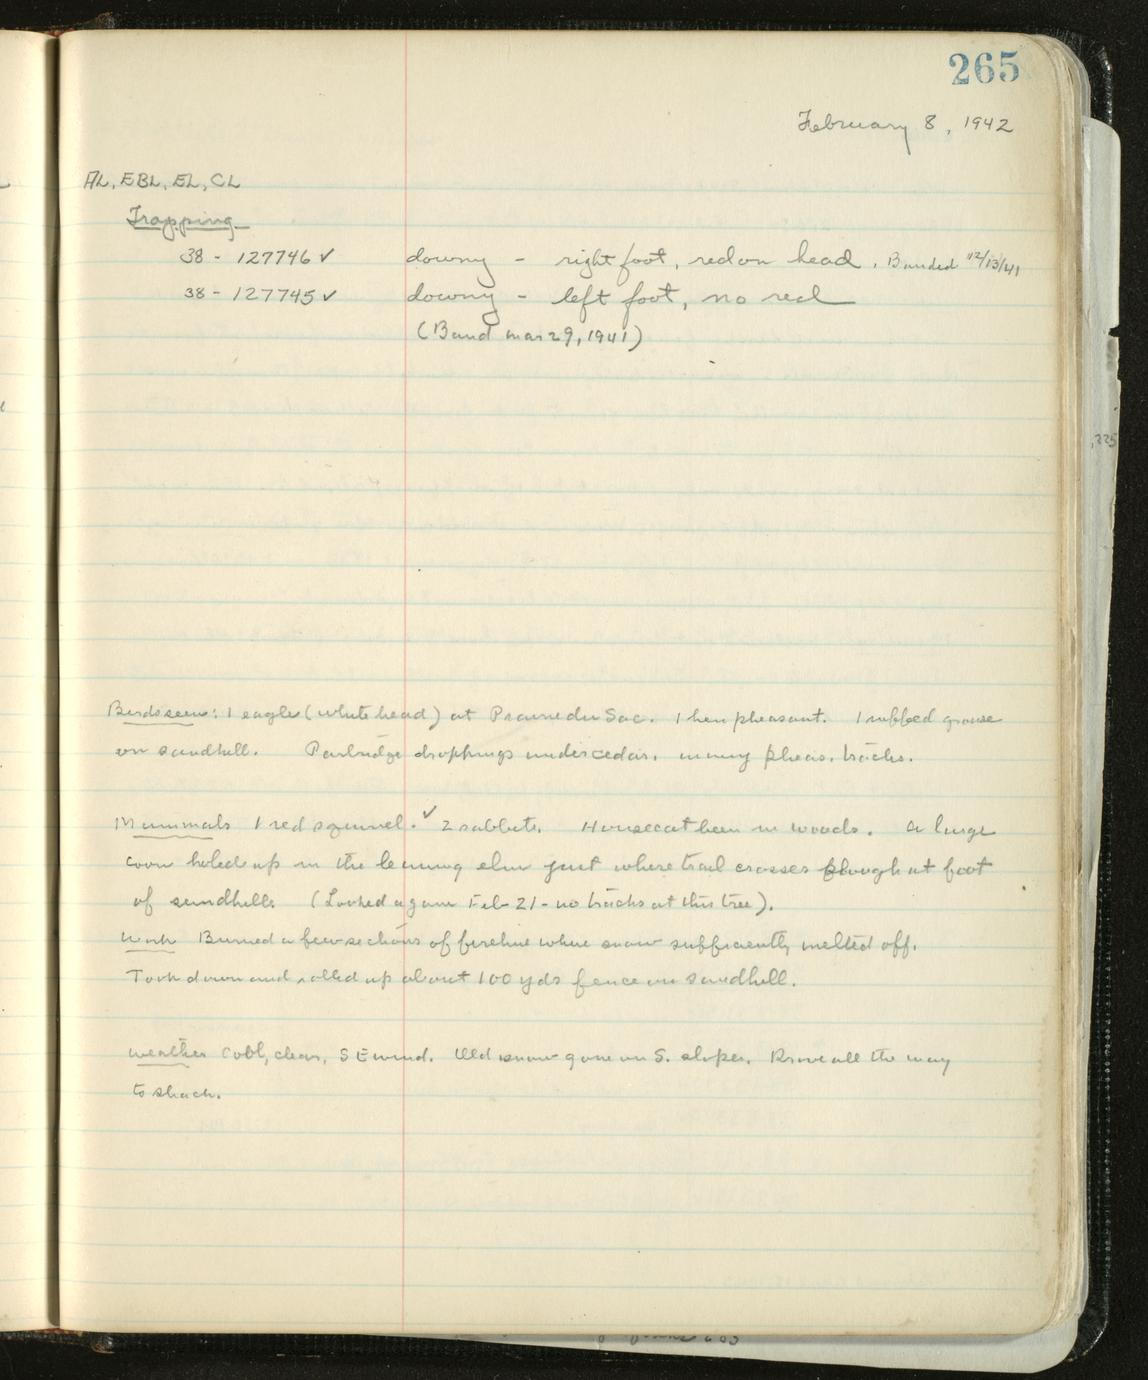 265
February 8, 1942
AL, EBL, EL, CL
Trapping
38 - 127746 ✓ downy - right foot, red on head. Banded 12/13/41
38 - 127745 ✓ downy - left foot, no red
(Band Mar 29, 1941)
Birds seen: 1 eagle (white head) at Prairie du Sac. 1 hen pheasant. 1 ruffed grouse
on sandhill. Partridge droppings under cedar. many pheas. tracks.
Mammals 1 red squirrel. ✓ 2 rabbits. Housecat been in woods. A large
coon holed up in the leaning elm just where trail crosses slough at foot
of sandhill. (Looked again Feb 21 - no tracks at this tree).
Work Burned a few sections of fireline where snow sufficiently melted off.
Took down and rolled up about 100 yds fence on sandhill.
Weather Cool, clear, SE wind. Old snow gone on S. slopes. Drove all the way
to shack.
225